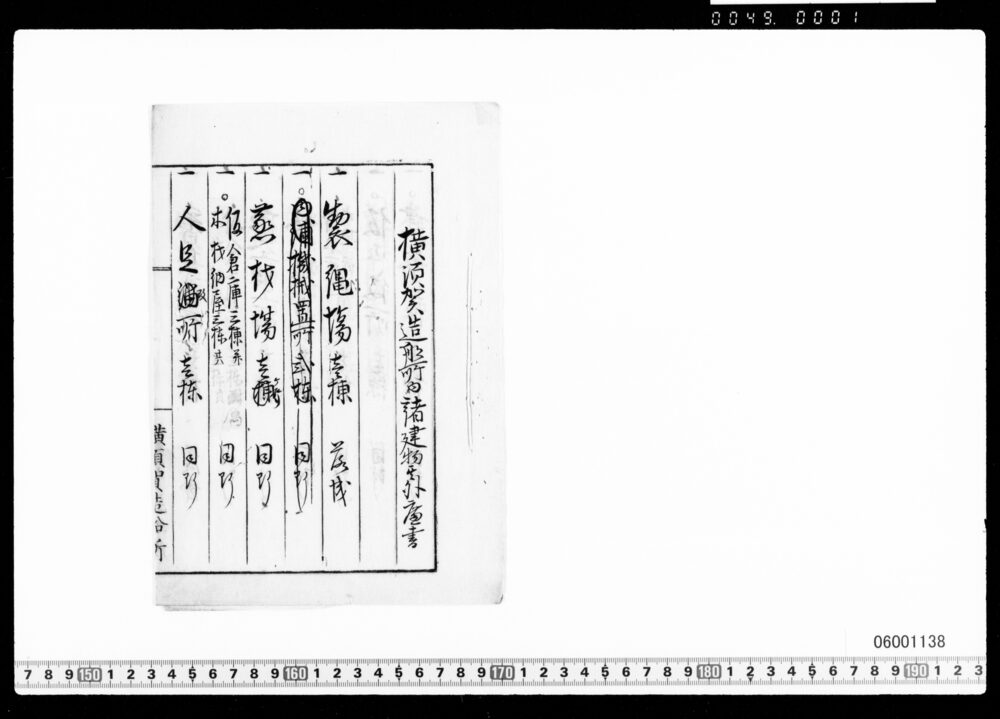 0049. 0001
横須賀造船所内諸建物其外廉書
一 製縄場壱棟 落成
一 内浦機械置所弐棟 同断
一 蒸材場壱棟 同断
一 仮倉庫三棟
木材納屋三棟共 同断
一 人足溜所壱棟 同断
横須賀造船所
06001138
7 8 9 150 1 2 3 4 5 6 7 8 9 160 1 2 3 4 5 6 7 8 9 170 1 2 3 4 5 6 7 8 9 180 1 2 3 4 5 6 7 8 9 190 1 2 3